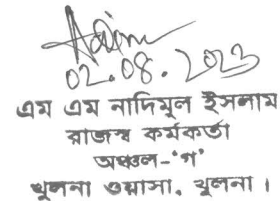 02.08.2023
এম এম নাদিমুল ইসলাম
রাজস্ব কর্মকর্তা
অঞ্চল-‘গ’
খুলনা ওয়াসা, খুলনা।